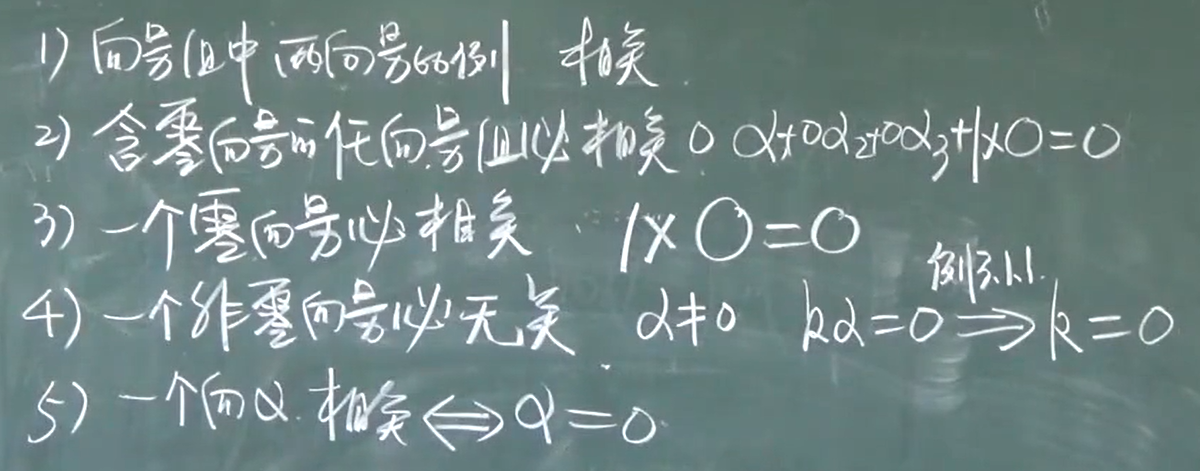 1) 向量组中两向量成比例 相关
2) 含零向量的任向量组必相关 0α₁+0α₂+0α₃+1×0=0
3) 一个零向量必相关. 1×0=0
4) 一个非零向量必无关 α≠0 kα=0 ⟹ k=0 例3.1.1.
5) 一个向α.相关⟺α=0.